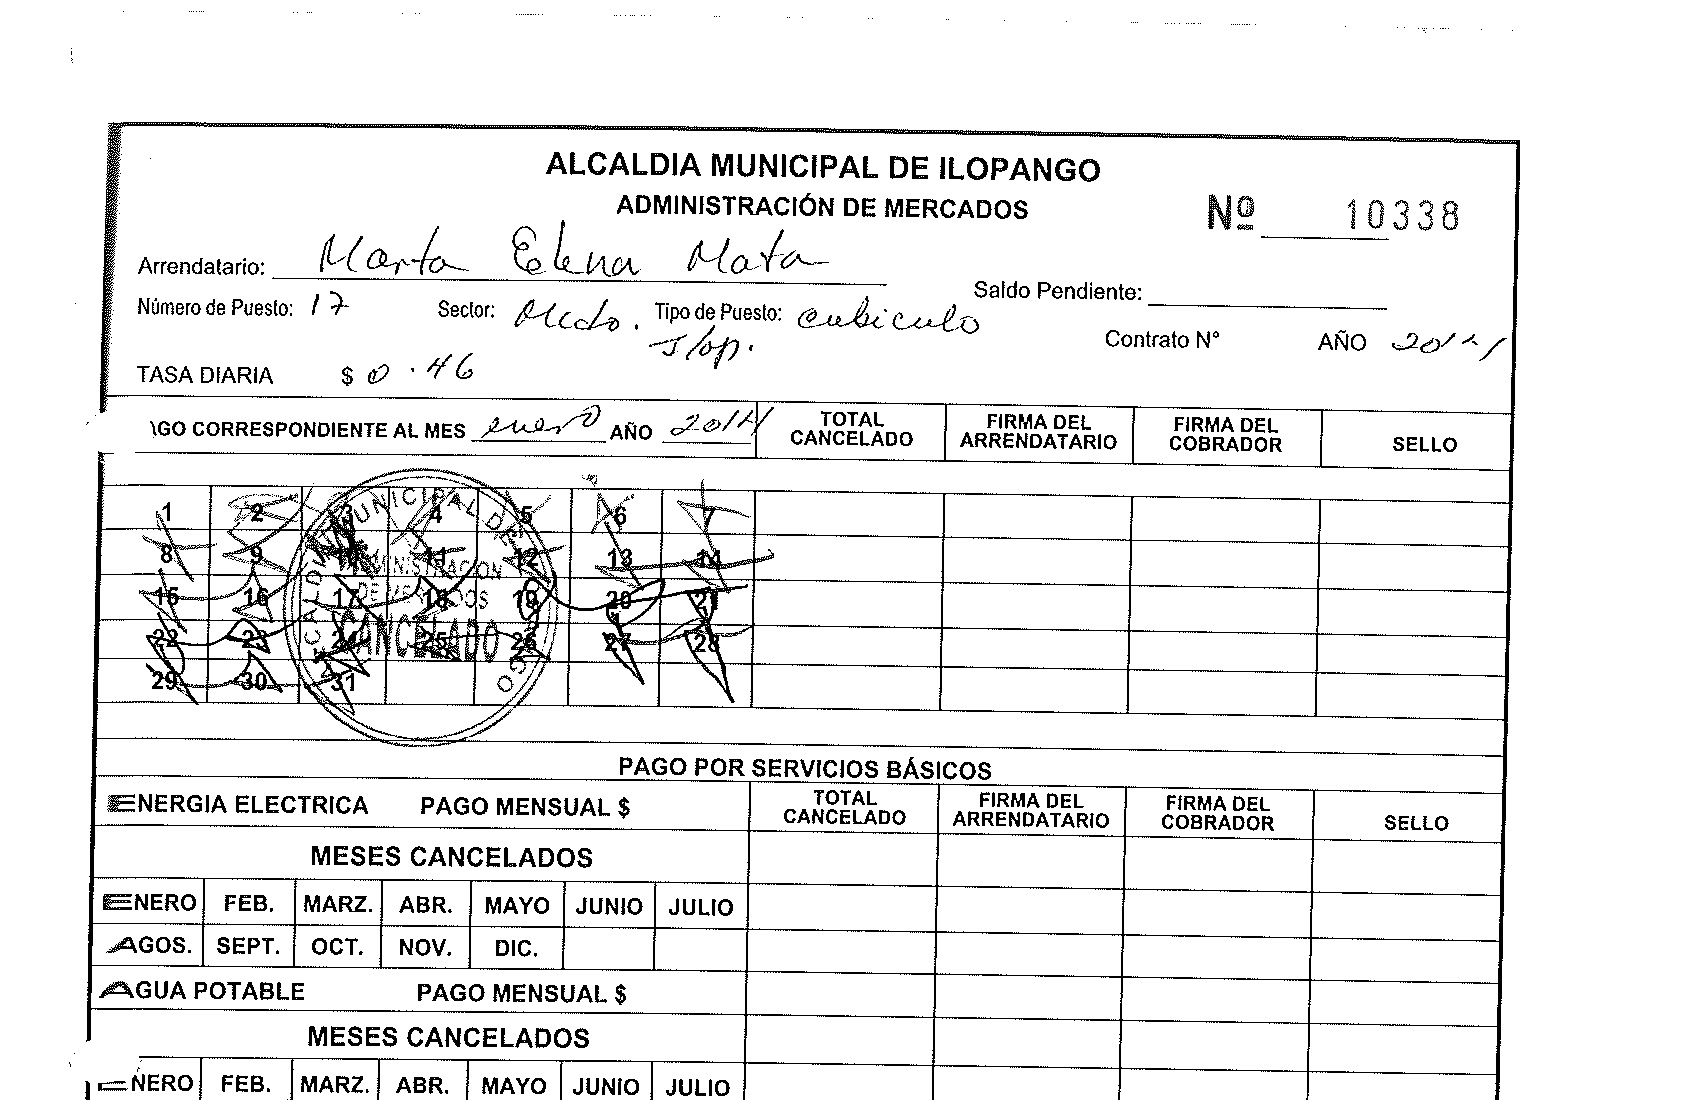 ALCALDIA MUNICIPAL DE ILOPANGO
ADMINISTRACIÓN DE MERCADOS
Nº 10338
Arrendatario: Marta Elena Mata
Saldo Pendiente:
Número de Puesto: 17 Sector: Mcdo. Tipo de Puesto: cubiculo
Ilop.
Contrato N° AÑO 2014
TASA DIARIA $ 0.46
\GO CORRESPONDIENTE AL MES enero AÑO 2014
TOTAL CANCELADO
FIRMA DEL ARRENDATARIO
FIRMA DEL COBRADOR
SELLO
1 2 3 4 5 6 7
8 9 10 11 12 13 14
15 16 17 18 19 20 21
22 23 24 25 26 27 28
29 30 31
ALCALDIA MUNICIPAL DE
ADMINISTRACION
DE MERCADOS
CANCELADO
PAGO POR SERVICIOS BÁSICOS
ENERGIA ELECTRICA PAGO MENSUAL $
TOTAL CANCELADO
FIRMA DEL ARRENDATARIO
FIRMA DEL COBRADOR
SELLO
MESES CANCELADOS
ENERO FEB. MARZ. ABR. MAYO JUNIO JULIO
AGOS. SEPT. OCT. NOV. DIC.
AGUA POTABLE PAGO MENSUAL $
MESES CANCELADOS
ENERO FEB. MARZ. ABR. MAYO JUNIO JULIO